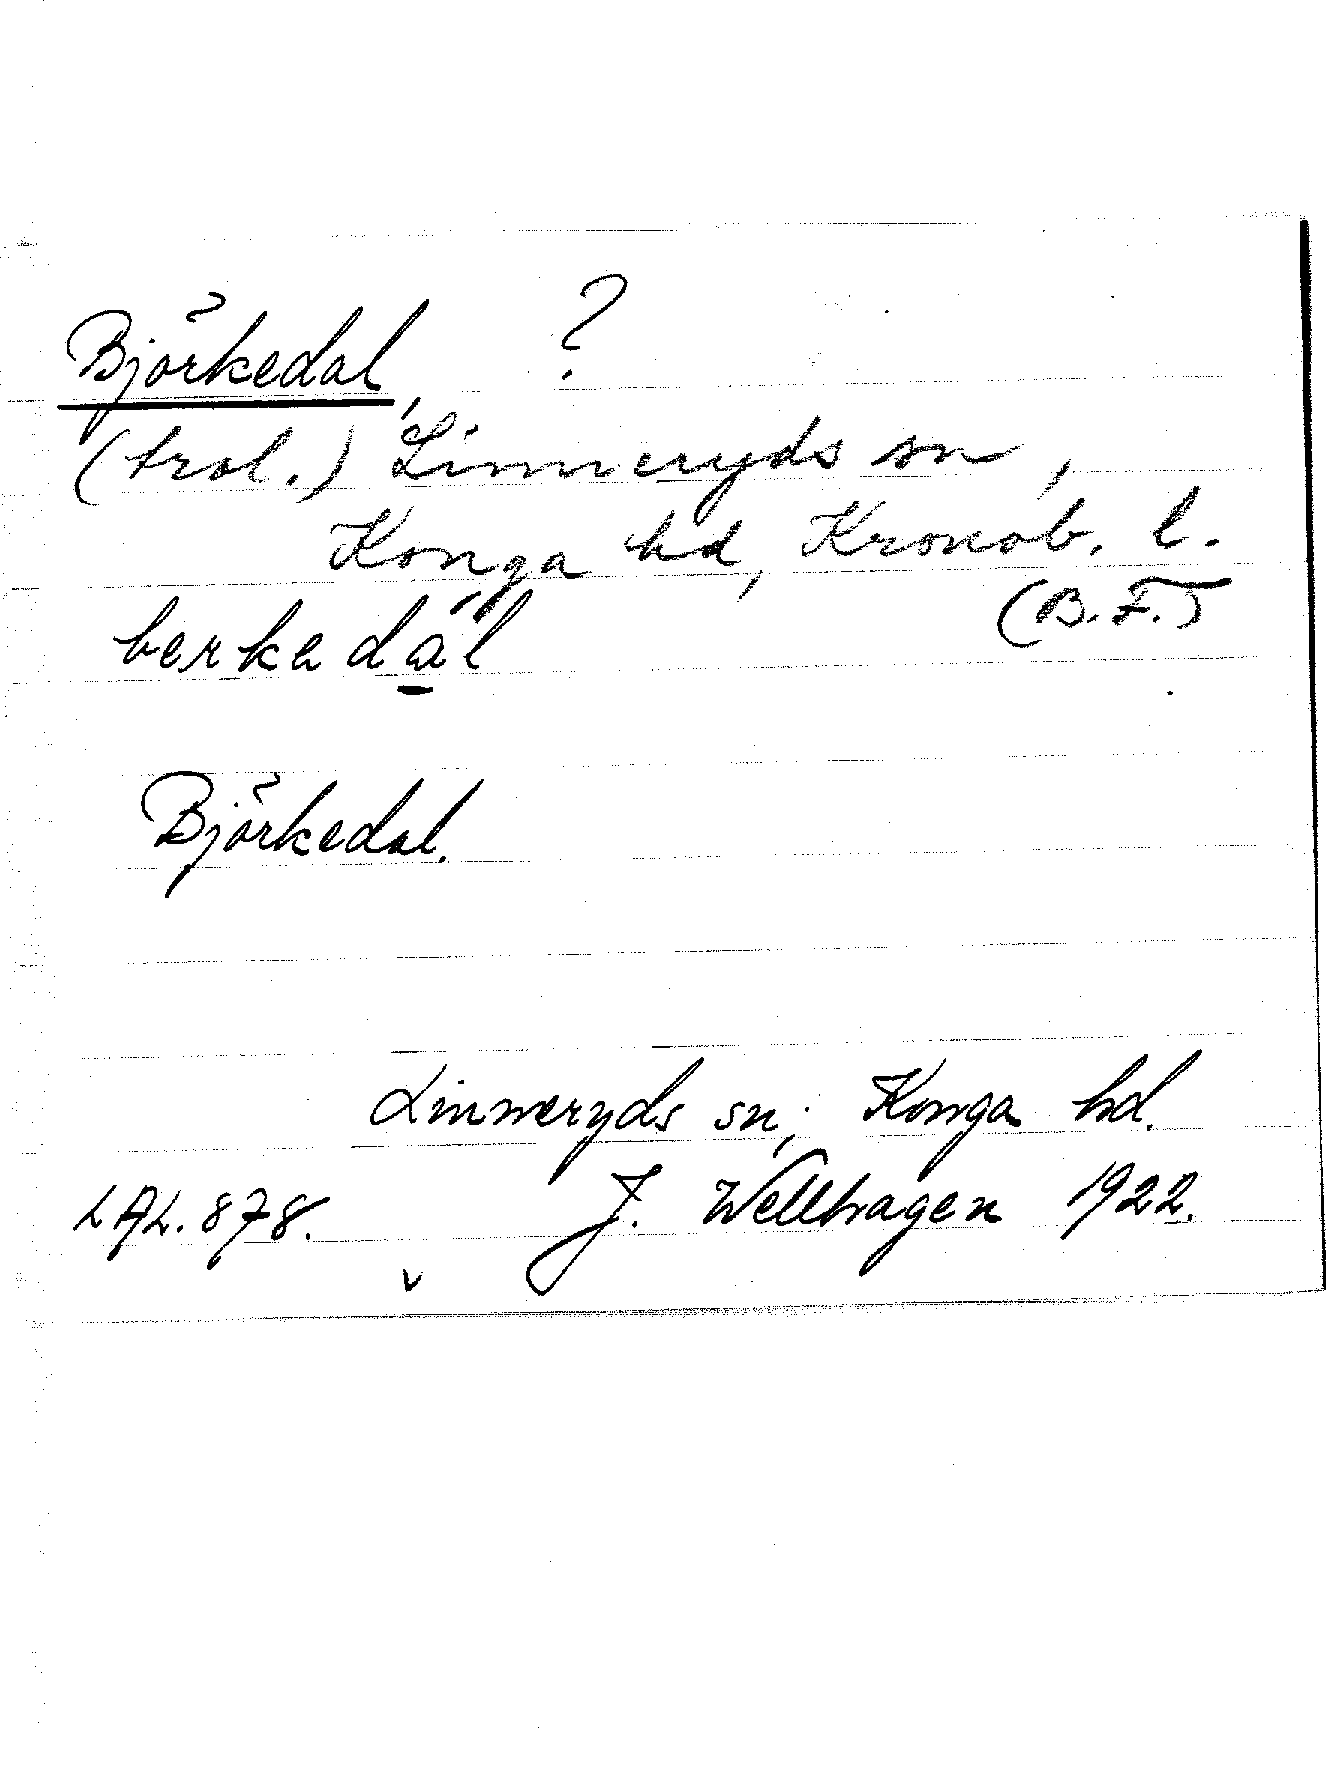 Björkedal, ?
(trol.) Linneryds sn,
Konga hd, Kronob. l.
(B.F.)
berkedál
Björkedal.
Linneryds sn; Konga hd.
LAL. 878. J. Wellhagen 1922.
v